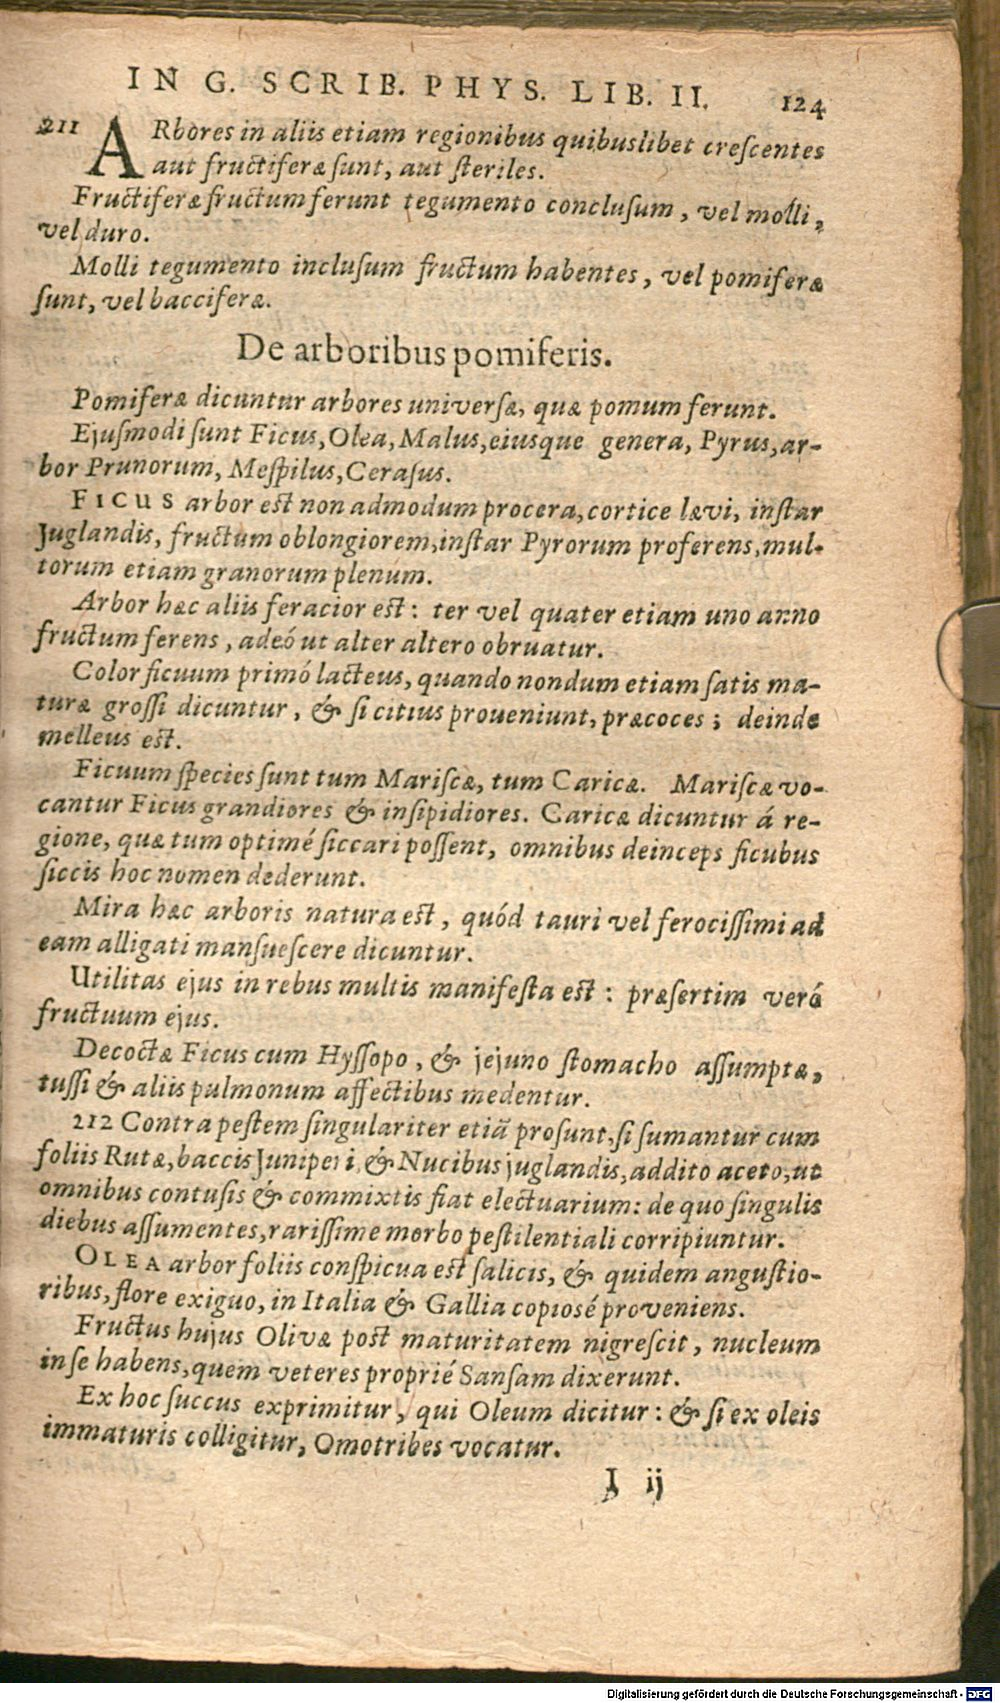 IN G. SCRIB. PHYS. LIB. II. 124
211 ARbores in aliis etiam regionibus quibuslibet crescentes
aut fructiferæ sunt, aut steriles.
Fructiferæ fructum ferunt tegumento conclusum, vel molli,
vel duro.
Molli tegumento inclusum fructum habentes, vel pomiferæ
sunt, vel bacciferæ.
De arboribus pomiferis.
Pomiferæ dicuntur arbores universæ, quæ pomum ferunt.
Ejusmodi sunt Ficus, Olea, Malus, eiusque genera, Pyrus, ar-
bor Prunorum, Mespilus, Cerasus.
FICUS arbor est non admodum procera, cortice lævi, instar
Juglandis, fructum oblongiorem, instar Pyrorum proferens, mul-
torum etiam granorum plenum.
Arbor hæc aliis feracior est: ter vel quater etiam uno anno
fructum ferens, adeó ut alter altero obruatur.
Color ficuum primó lacteus, quando nondum etiam satis ma-
turæ grossi dicuntur, & si citius proueniunt, præcoces; deinde
melleus est.
Ficuum species sunt tum Mariscæ, tum Caricæ. Mariscæ vo-
cantur Ficus grandiores & insipidiores. Caricæ dicuntur á re-
gione, quæ tum optimé siccari possent, omnibus deinceps ficubus
siccis hoc nomen dederunt.
Mira hæc arboris natura est, quód tauri vel ferocissimi ad
eam alligati mansuescere dicuntur.
Utilitas ejus in rebus multis manifesta est: præsertim veró
fructuum ejus.
Decoctæ Ficus cum Hyssopo, & jejuno stomacho assumptæ,
tussi & aliis pulmonum affectibus medentur.
212 Contra pestem singulariter etiã prosunt, si sumantur cum
foliis Rutæ, baccis Juniperi, & Nucibus juglandis, addito aceto, ut
omnibus contusis & commixtis fiat electuarium: de quo singulis
diebus assumentes, rarissime morbo pestilentiali corripiuntur.
OLEA arbor foliis conspicua est salicis, & quidem angustio-
ribus, flore exiguo, in Italia & Gallia copiosé proveniens.
Fructus hujus Olivæ post maturitatem nigrescit, nucleum
in se habens, quem veteres proprié Sansam dixerunt.
Ex hoc succus exprimitur, qui Oleum dicitur: & si ex oleis
immaturis colligitur, Omotribes vocatur.
I ij
Digitalisierung gefördert durch die Deutsche Forschungsgemeinschaft - DFG